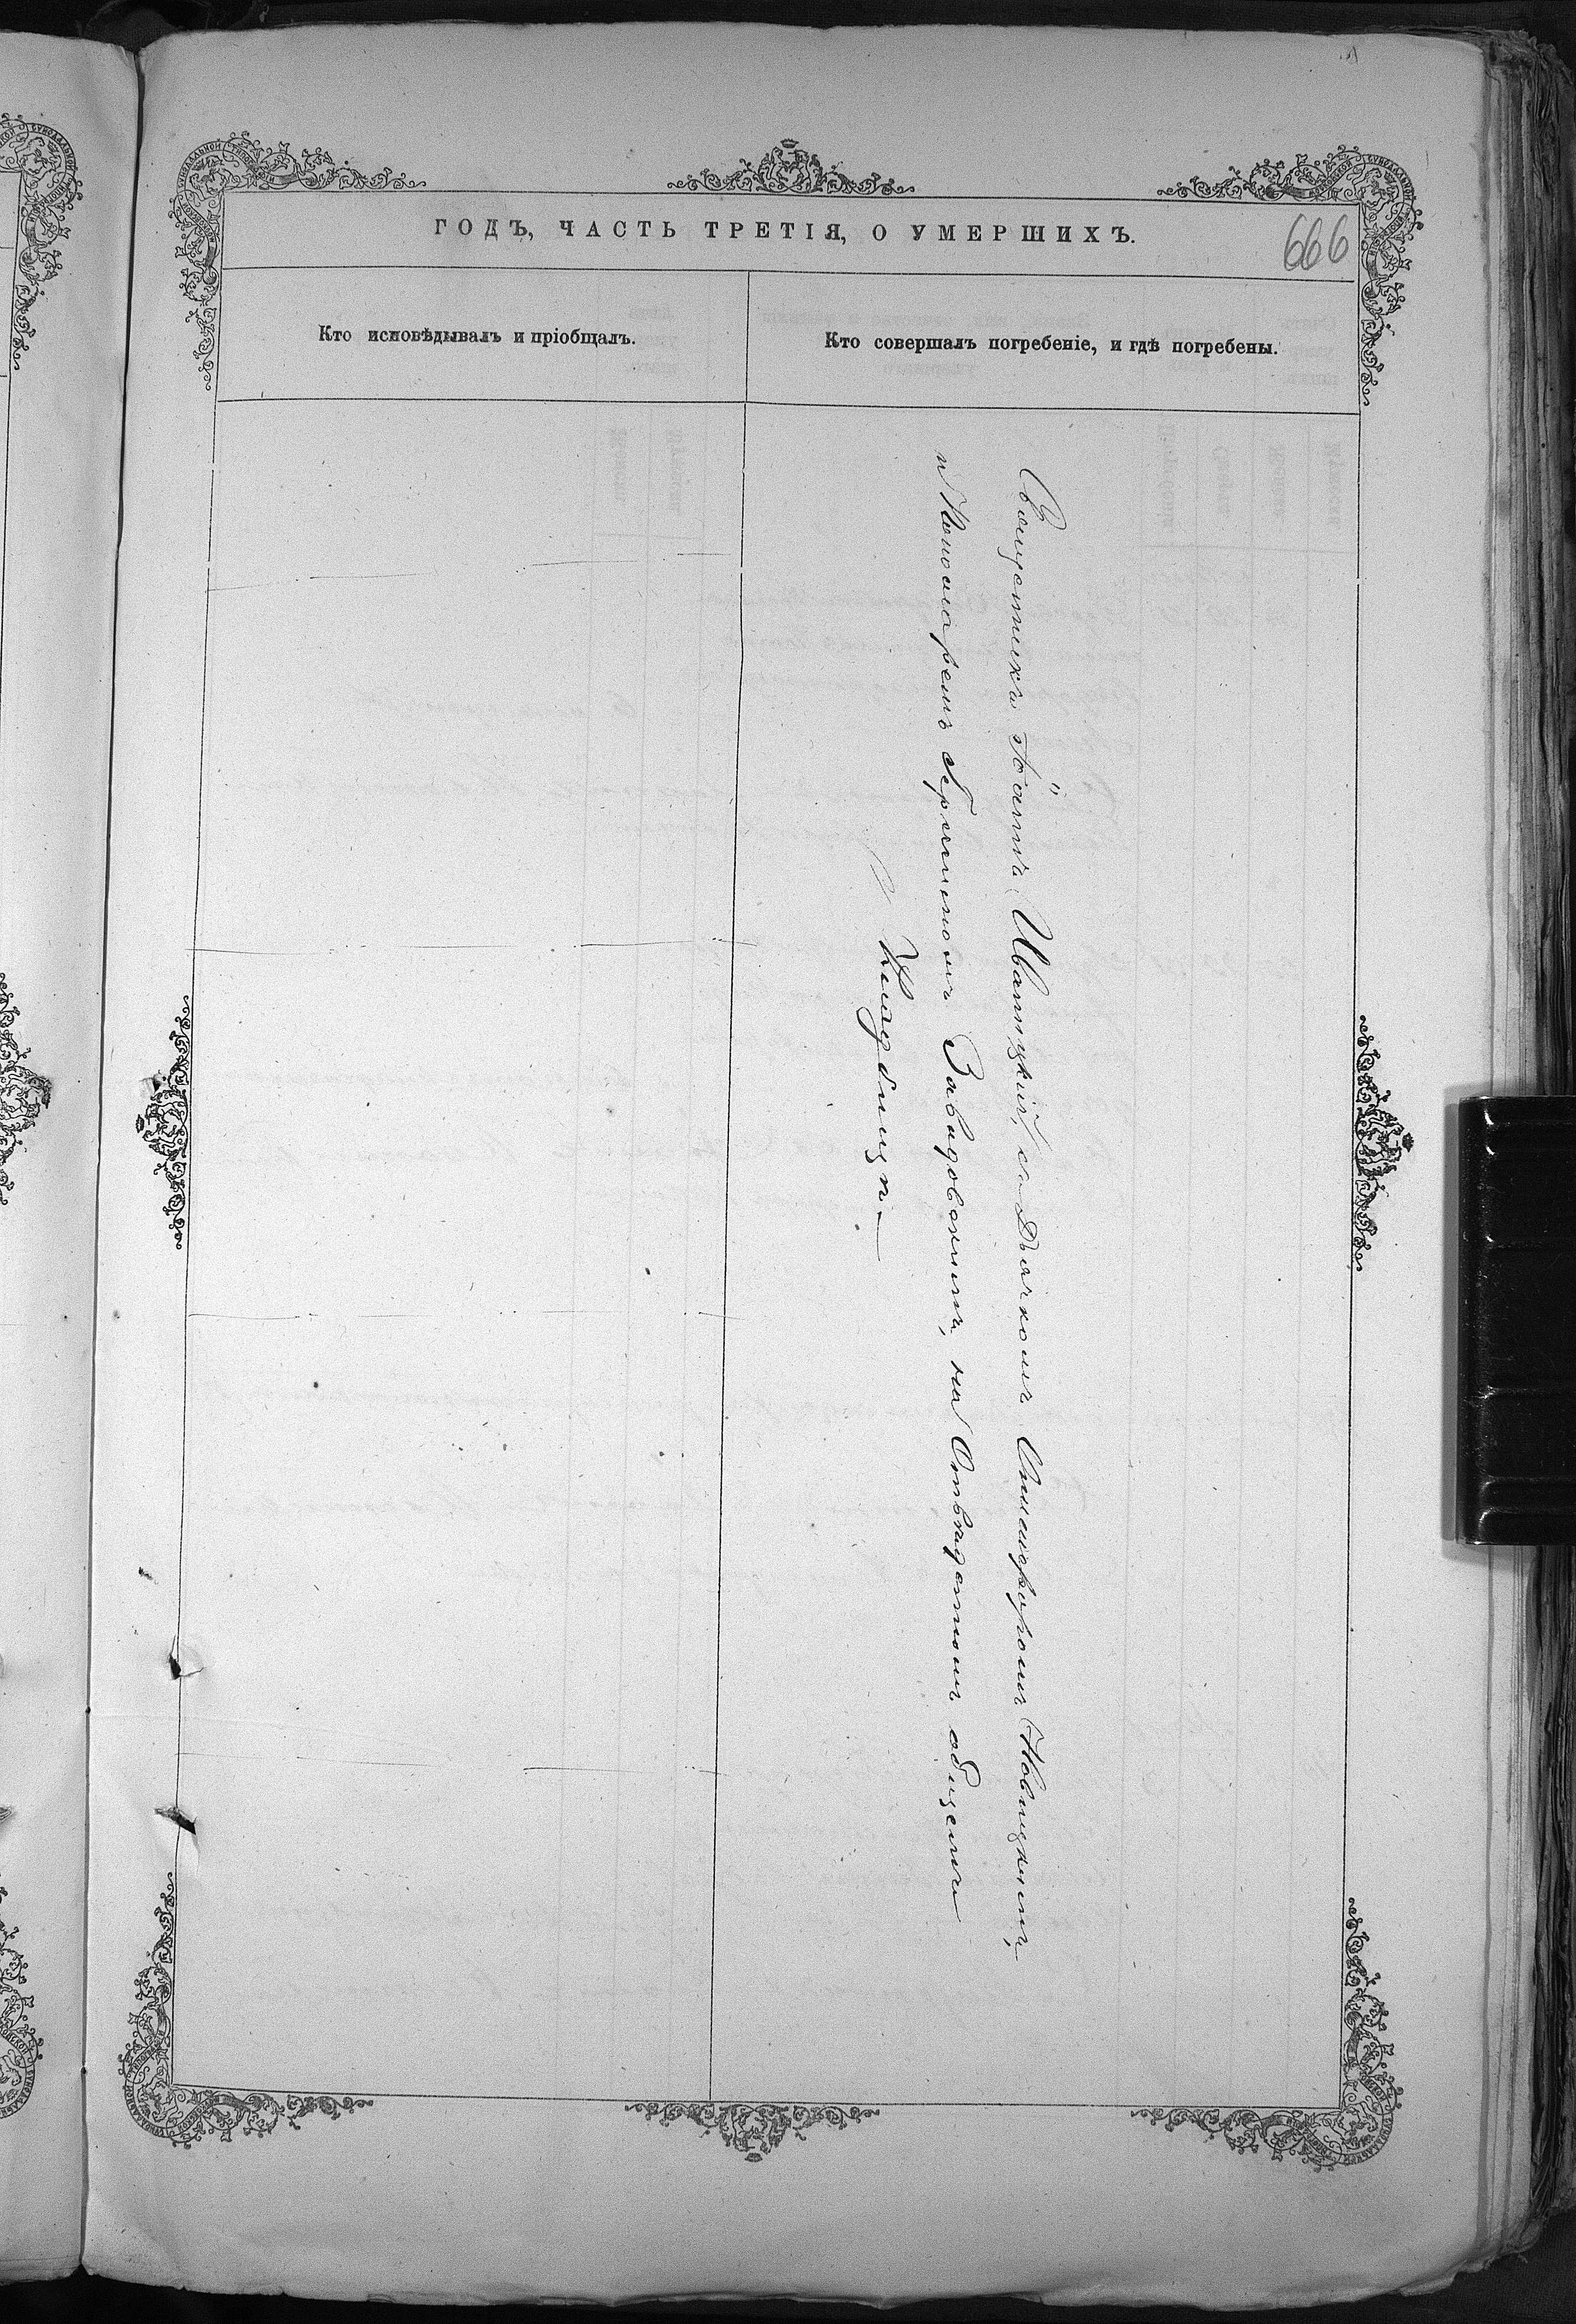 ГОДЪ, ЧАСТЬ ТРЕТІЯ, О УМЕРШИХЪ.
666
Кто исповѣдывалъ и пріобщалъ.
Кто совершалъ погребеніе, и гдѣ погребены.
Священникъ Іоаннъ Иваницкій, съ Дьячкомъ Никифоромъ Новицкимъ,
и Пономаремъ Завадовскимъ, на Отведенномъ общемъ
Кладбищѣ.